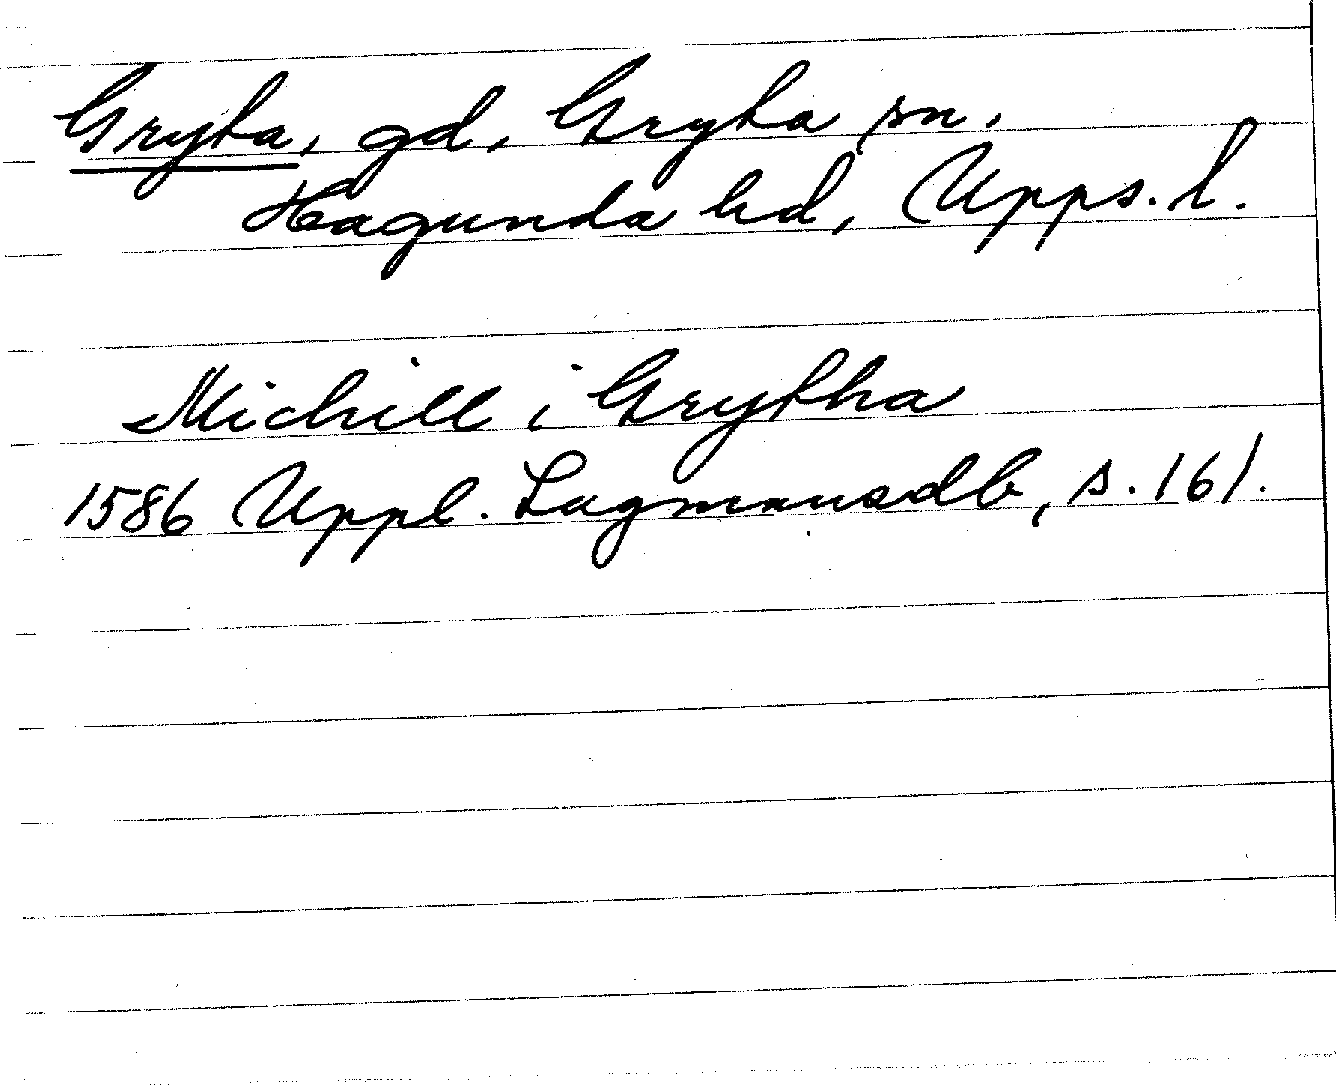 Gryta, gd, Gryta sn.
Hagunda hd, Upps. l.
Michill i Grytha
1586 Uppl. Lagmansdb, s. 161.